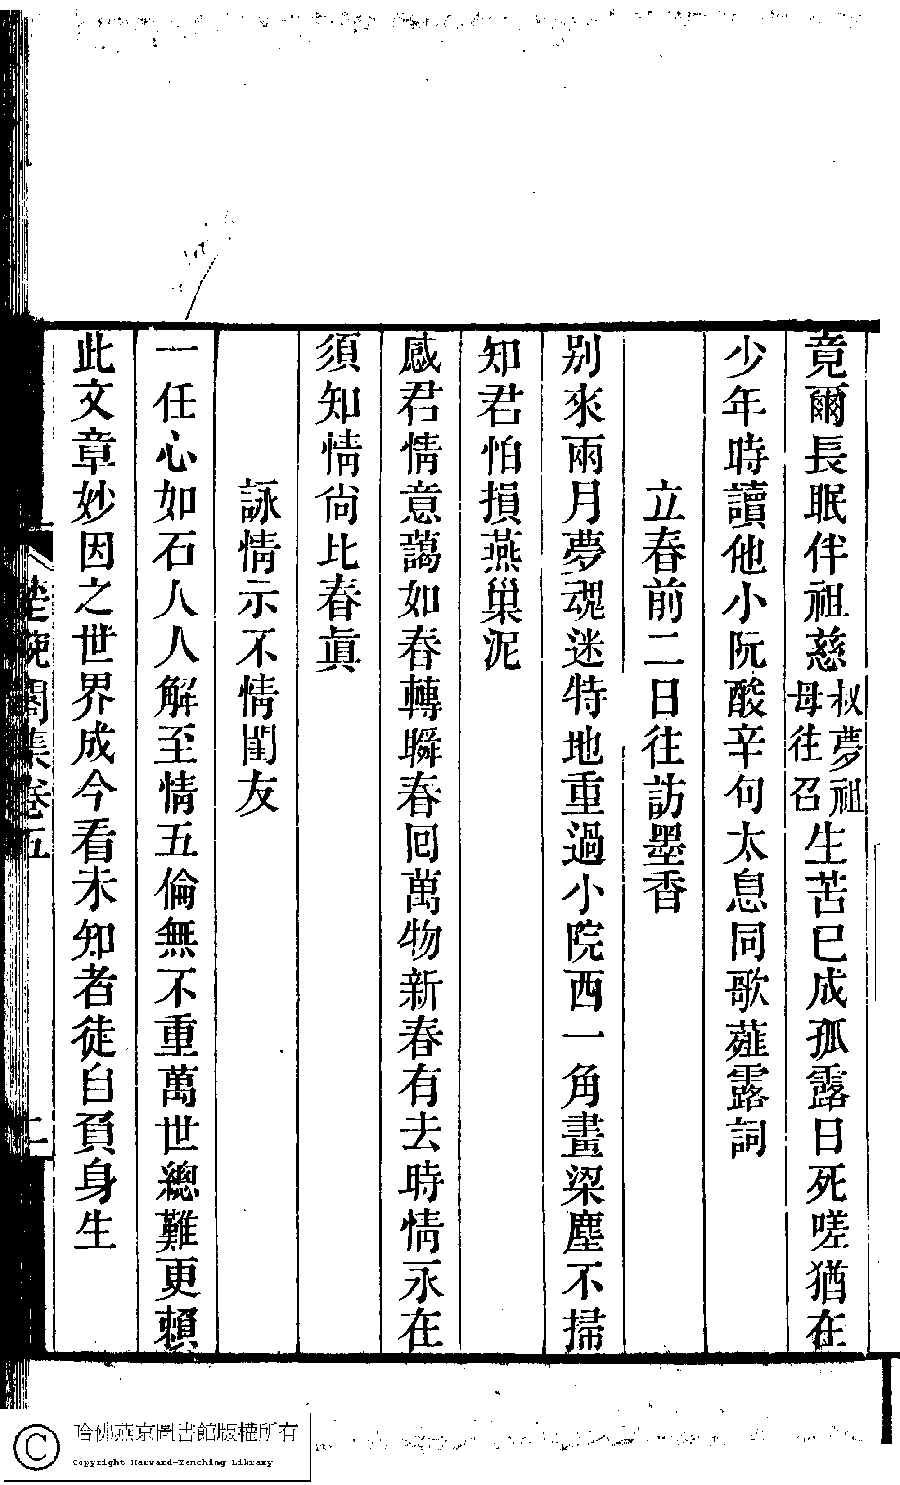 竟爾長眠伴祖慈叔夢祖母往召生苦已成孤露日死嗟猶在
少年時讀他小阮酸辛句太息同歌薤露詞
立春前二日往訪墨香
別來兩月夢魂迷特地重過小院西一角畫梁塵不掃
知君怕損燕巢泥
感君情意藹如春轉瞬春囘萬物新春有去時情永在
須知情尙比春眞
詠情示不情閨友
一任心如石人人解至情五倫無不重萬世總難更賴
此文章妙因之世界成今看未知者徒自負身生
閣集卷五
二
哈佛燕京圖書館版權所有
Copyright Harvard-Yenching Library